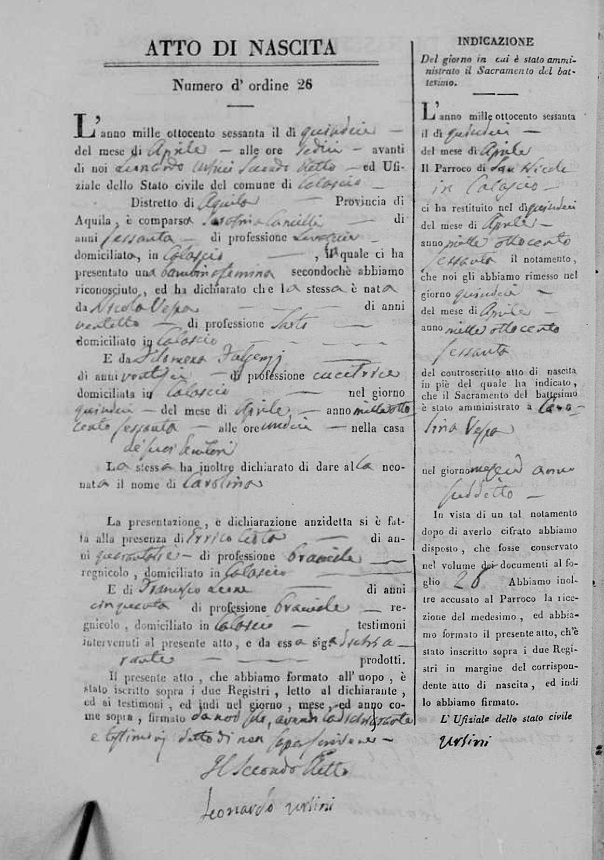 ATTO DI NASCITA
Numero d' ordine 26
L'anno mille ottocento sessanta il dì quindici
del mese di Aprile alle ore sedici avanti
di noi Leonardo Ursini Secondo Eletto ed Ufi-
ziale dello Stato civile del comune di Calascio
Distretto di Aquila Provincia di
Aquila, è comparsa di
anni sessanta di professione Levatrice
domiciliata, in Calascio , la quale ci ha
presentato una bambina femina secondochè abbiamo
riconosciuto, ed ha dichiarato che la stessa è nata
da Nicola Vespa di anni
ventotto di professione Sarto
domiciliato in Calascio
E da Filomena
di anni di professione cucitrice
domiciliata in Calascio nel giorno
quindici del mese di Aprile anno mille otto
cento sessanta alle ore undici nella casa
de' suoi Genitori
La stessa ha inoltre dichiarato di dare alla neo-
nata il nome di Carolina
La presentazione, e dichiarazione anzidetta si è fat-
ta alla presenza di Errico di an-
ni di professione
regnicolo, domiciliato in Calascio
E di Francesco di anni
cinquanta di professione re-
gnicolo, domiciliato in Calascio testimoni
intervenuti al presente atto, e da essa
prodotti.
Il presente atto, che abbiamo formato all'uopo, è
stato iscritto sopra i due Registri, letto al dichiarante,
ed ai testimoni, ed indi nel giorno, mese, ed anno co-
me sopra, firmato da noi avendo la dichiarante
e testimonj detto di non saper scrivere
Il Secondo Eletto
Leonardo Ursini
INDICAZIONE
Del giorno in cui è stato ammi-
nistrato il Sacramento del bat-
tesimo.
L'anno mille ottocento sessanta
il dì quindici
del mese di Aprile
Il Parroco di San Nicola
in Calascio
ci ha restituito nel dì quindici
del mese di Aprile
anno mille ottocento
sessanta il notamento,
che noi gli abbiamo rimesso nel
giorno quindici
del mese di Aprile
anno mille ottocento
sessanta
del controscritto atto di nascita
in piè del quale ha indicato,
che il Sacramento del battesimo
è stato amministrato a Caro-
lina Vespa
nel giorno mese ed anno
suddetto
In vista di un tal notamento
dopo di averlo cifrato abbiamo
disposto, che fosse conservato
nel volume dei documenti al fo-
glio 26 Abbiamo inol-
tre accusato al Parroco la rice-
zione del medesimo, ed abbia-
mo formato il presente atto, ch'è
stato inscritto sopra i due Regi-
stri in margine del corrispon-
dente atto di nascita, ed indi
lo abbiamo firmato.
L'Ufiziale dello stato civile
Ursini